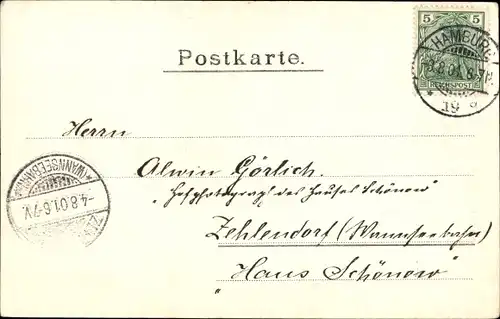 5 5
REICHSPOST
HAMBURG
3.8.01.6-7N.
* 19 a
Postkarte.
Herrn
Alwin Görlich.
"Hofphotograph des Hauses Schönow"
Zehlendorf (Wannseebahn)
"Haus Schönow"
*(WANNSEEBAHN)*
-4.8.01.6-7V.